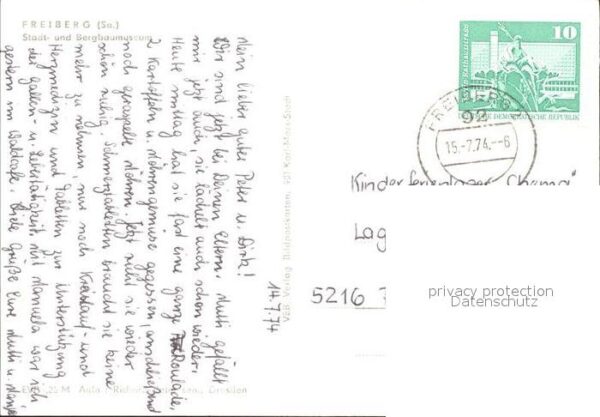 FREIBERG (Sa.)
Stadt- und Bergbaumuseum
14.7.74
Mein lieber guter Peter u. Dirk!
Wir sind jetzt bei Deinen Eltern. Mutti gefällt
mir jetzt auch, sie lächelt auch schon wieder.
Heute mittag hat sie fast eine ganze Roulade,
2 Kartoffeln u. Möhrengemüse gegessen, anschließend
noch geraspelte Möhren. Jetzt ruht sie wieder
schön ruhig. Schmerztabletten braucht sie keine
mehr zu nehmen, nur noch Kreislauf- und
Herzmedizin und Tabletten zur Unterstützung
der Gallen- u. Lebertätigkeit. Mit Manuela war ich
gestern im Waldcafe. Viele Grüße Eure Mutti u.
VEB Verlag Bildpostkarten, 101 Karl-Marx-Stadt
DEUTSCHE DEMOKRATISCHE REPUBLIK
10
FREIBERG
92
15.-7.74.--6
Kinderferienlager "Champ"
Lag
5216
privacy protection
Datenschutz